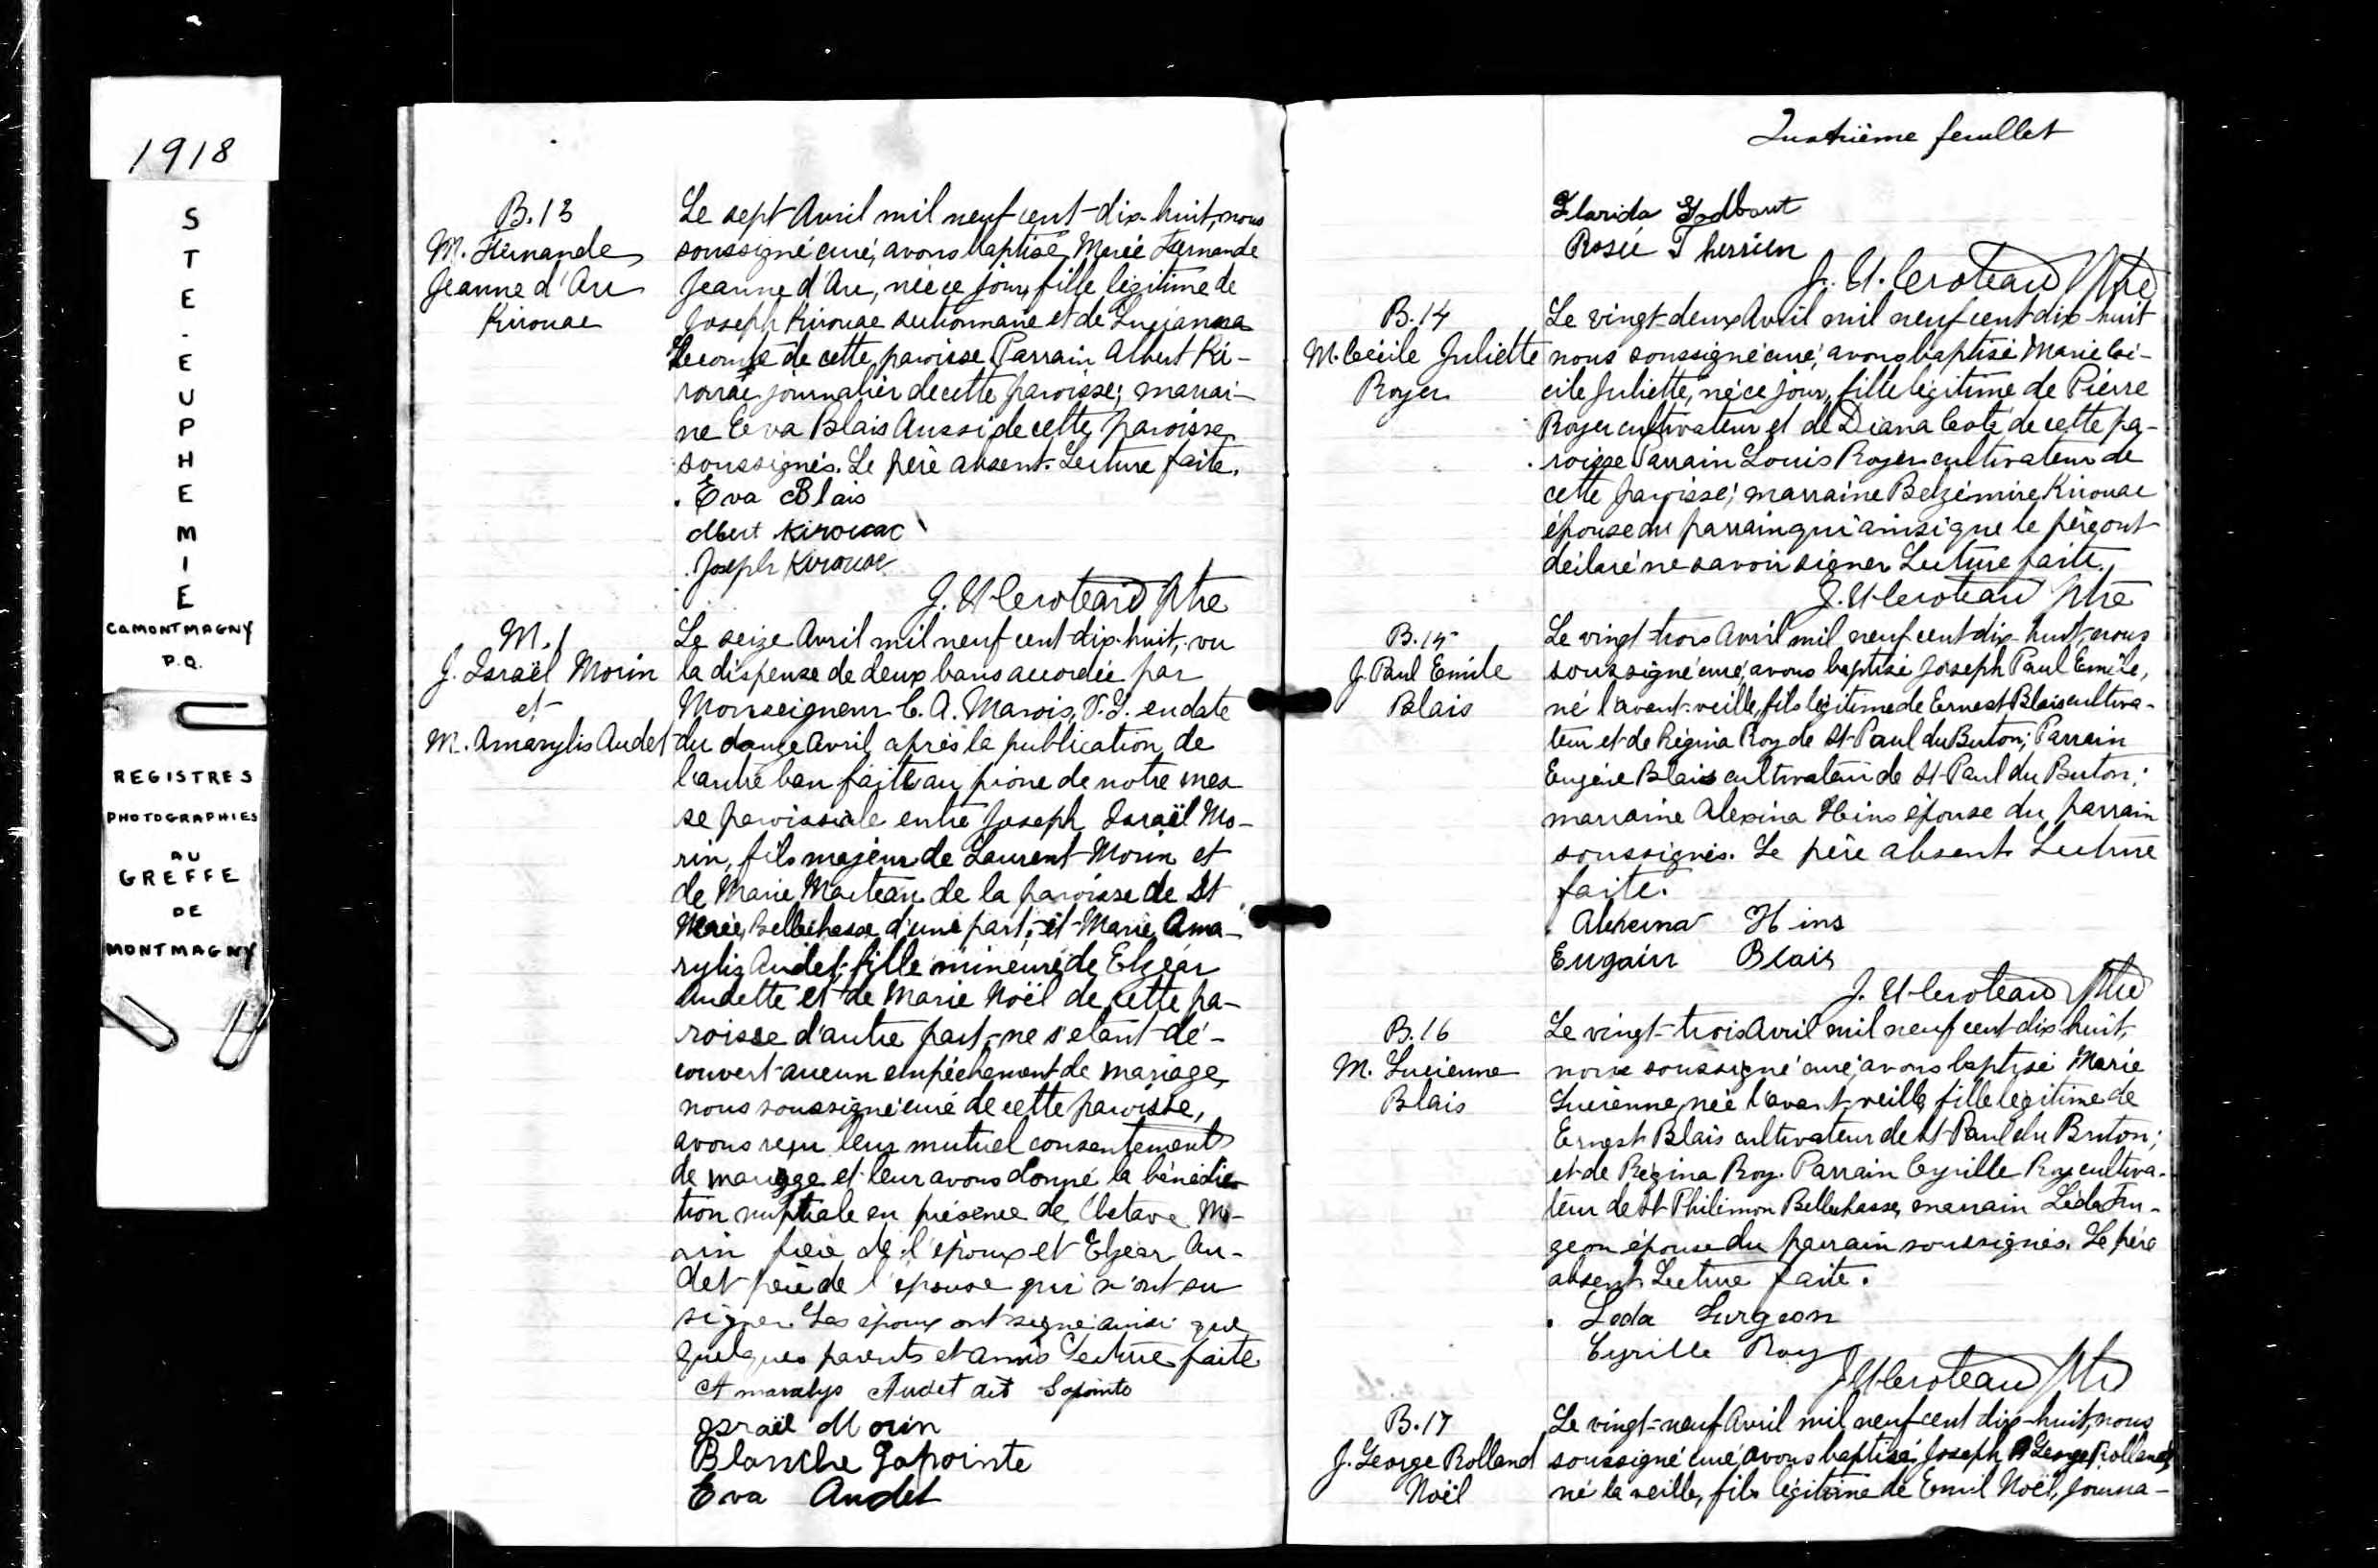 1918
STE-EUPHEMIE
CoMONTMAGNY
P.Q.
REGISTRES
PHOTOGRAPHIES
AU
GREFFE
DE
MONTMAGNY
B.13
M. Fernande
Jeanne d'Arc
Kirouac
Le sept Avril mil neuf cent dix-huit, nous
soussigné curé, avons baptisé Marie Fernande
Jeanne d'Arc, née ce jour, fille légitime de
Joseph Kirouac et de
Lecomte de cette paroisse. Parrain Albert Ki-
rouac journalier de cette paroisse; marrai-
ne Eva Blais Aussi de cette paroisse
soussignés. Le père absent. Lecture faite.
Eva Blais
Albert Kirouac
Joseph Kirouac
J. U. Croteau Ptre
M.1
J. Israël Morin
et
M. Amarylis Audet
Le seize Avril mil neuf cent dix-huit, vu
la dispense de deux bans accordée par
Monseigneur C. A. Marois, V.G. en date
du douze Avril, après la publication de
l'autre ban faite au prône de notre mes
se paroissiale entre Joseph Israël Mo-
rin, fils majeur de Laurent Morin et
de Marie Marteau de la paroisse de St
Bellechasse d'une part, et Marie Ama-
rylis Audet, fille mineure de Elzéar
Audette et de Marie Noël de cette pa-
roisse d'autre part, ne s'étant dé-
couvert aucun empêchement de mariage,
nous soussigné curé de cette paroisse,
avons reçu leur mutuel consentement
de mariage et leur avons donné la bénédic
tion nuptiale en présence de Octave Mo-
rin frère de l'époux et Elzear Au-
det père de l'épouse qui n'ont su
signer. Les époux ont signé ainsi que
quelques parents et amis Lecture faite
Amaralys Audet dit Lapointe
Israël Morin
Blanche Lapointe
Eva Audet
Quatrième feuillet
Florida Godbout
Rosée Therrien
J. U. Croteau Ptre
B.14
M. Cécile Juliette
Royer
Le vingt-deux Avril mil neuf cent dix-huit
nous soussigné curé, avons baptisé Marie Cé-
cile Juliette, né ce jour, fille légitime de Pierre
Royer cultivateur et de Diana Coté de cette pa-
roisse Parrain Louis Royer cultivateur de
cette paroisse; marraine Belzémire Kirouac
épouse du parrain qui ainsi que le père ont
déclaré ne savoir signer Lecture faite.
J. U. Croteau Ptre
B.15
J. Paul Emile
Blais
Le vingt-trois Avril mil neuf cent dix-huit, nous
soussigné curé, avons baptisé Joseph Paul Emile,
né l'avant-veille, fils légitime de Ernest Blais cultiva-
teur et de Régina Roy de St-Paul du Buton; Parrain
Eugène Blais cultivateur de St-Paul du Buton;
marraine Alexina Hins épouse du parrain
soussignés. Le père absent Lecture
faite.
Alexina Hins
Eugain Blais
J. U. Croteau Ptre
B.16
M. Lucienne
Blais
Le vingt-trois Avril mil neuf cent dix-huit,
nous soussigné curé, avons baptisé Marie
Lucienne, née l'avant-veille, fille légitime de
Ernest Blais cultivateur de St-Paul du Buton;
et de Régina Roy. Parrain Cyrille Roy cultiva-
teur de St Philémon Bellechasse, marrain Léda Tur-
geon épouse du parrain soussignés. Le père
absent Lecture faite.
Leda Turgeon
Cyrille Roy
J. U. Croteau Ptre
B.17
J. George Rolland
Noël
Le vingt-neuf Avril mil neuf cent dix-huit, nous
soussigné curé, avons baptisé Joseph George Rolland,
né la veille, fils légitime de Emil Noël, journa-